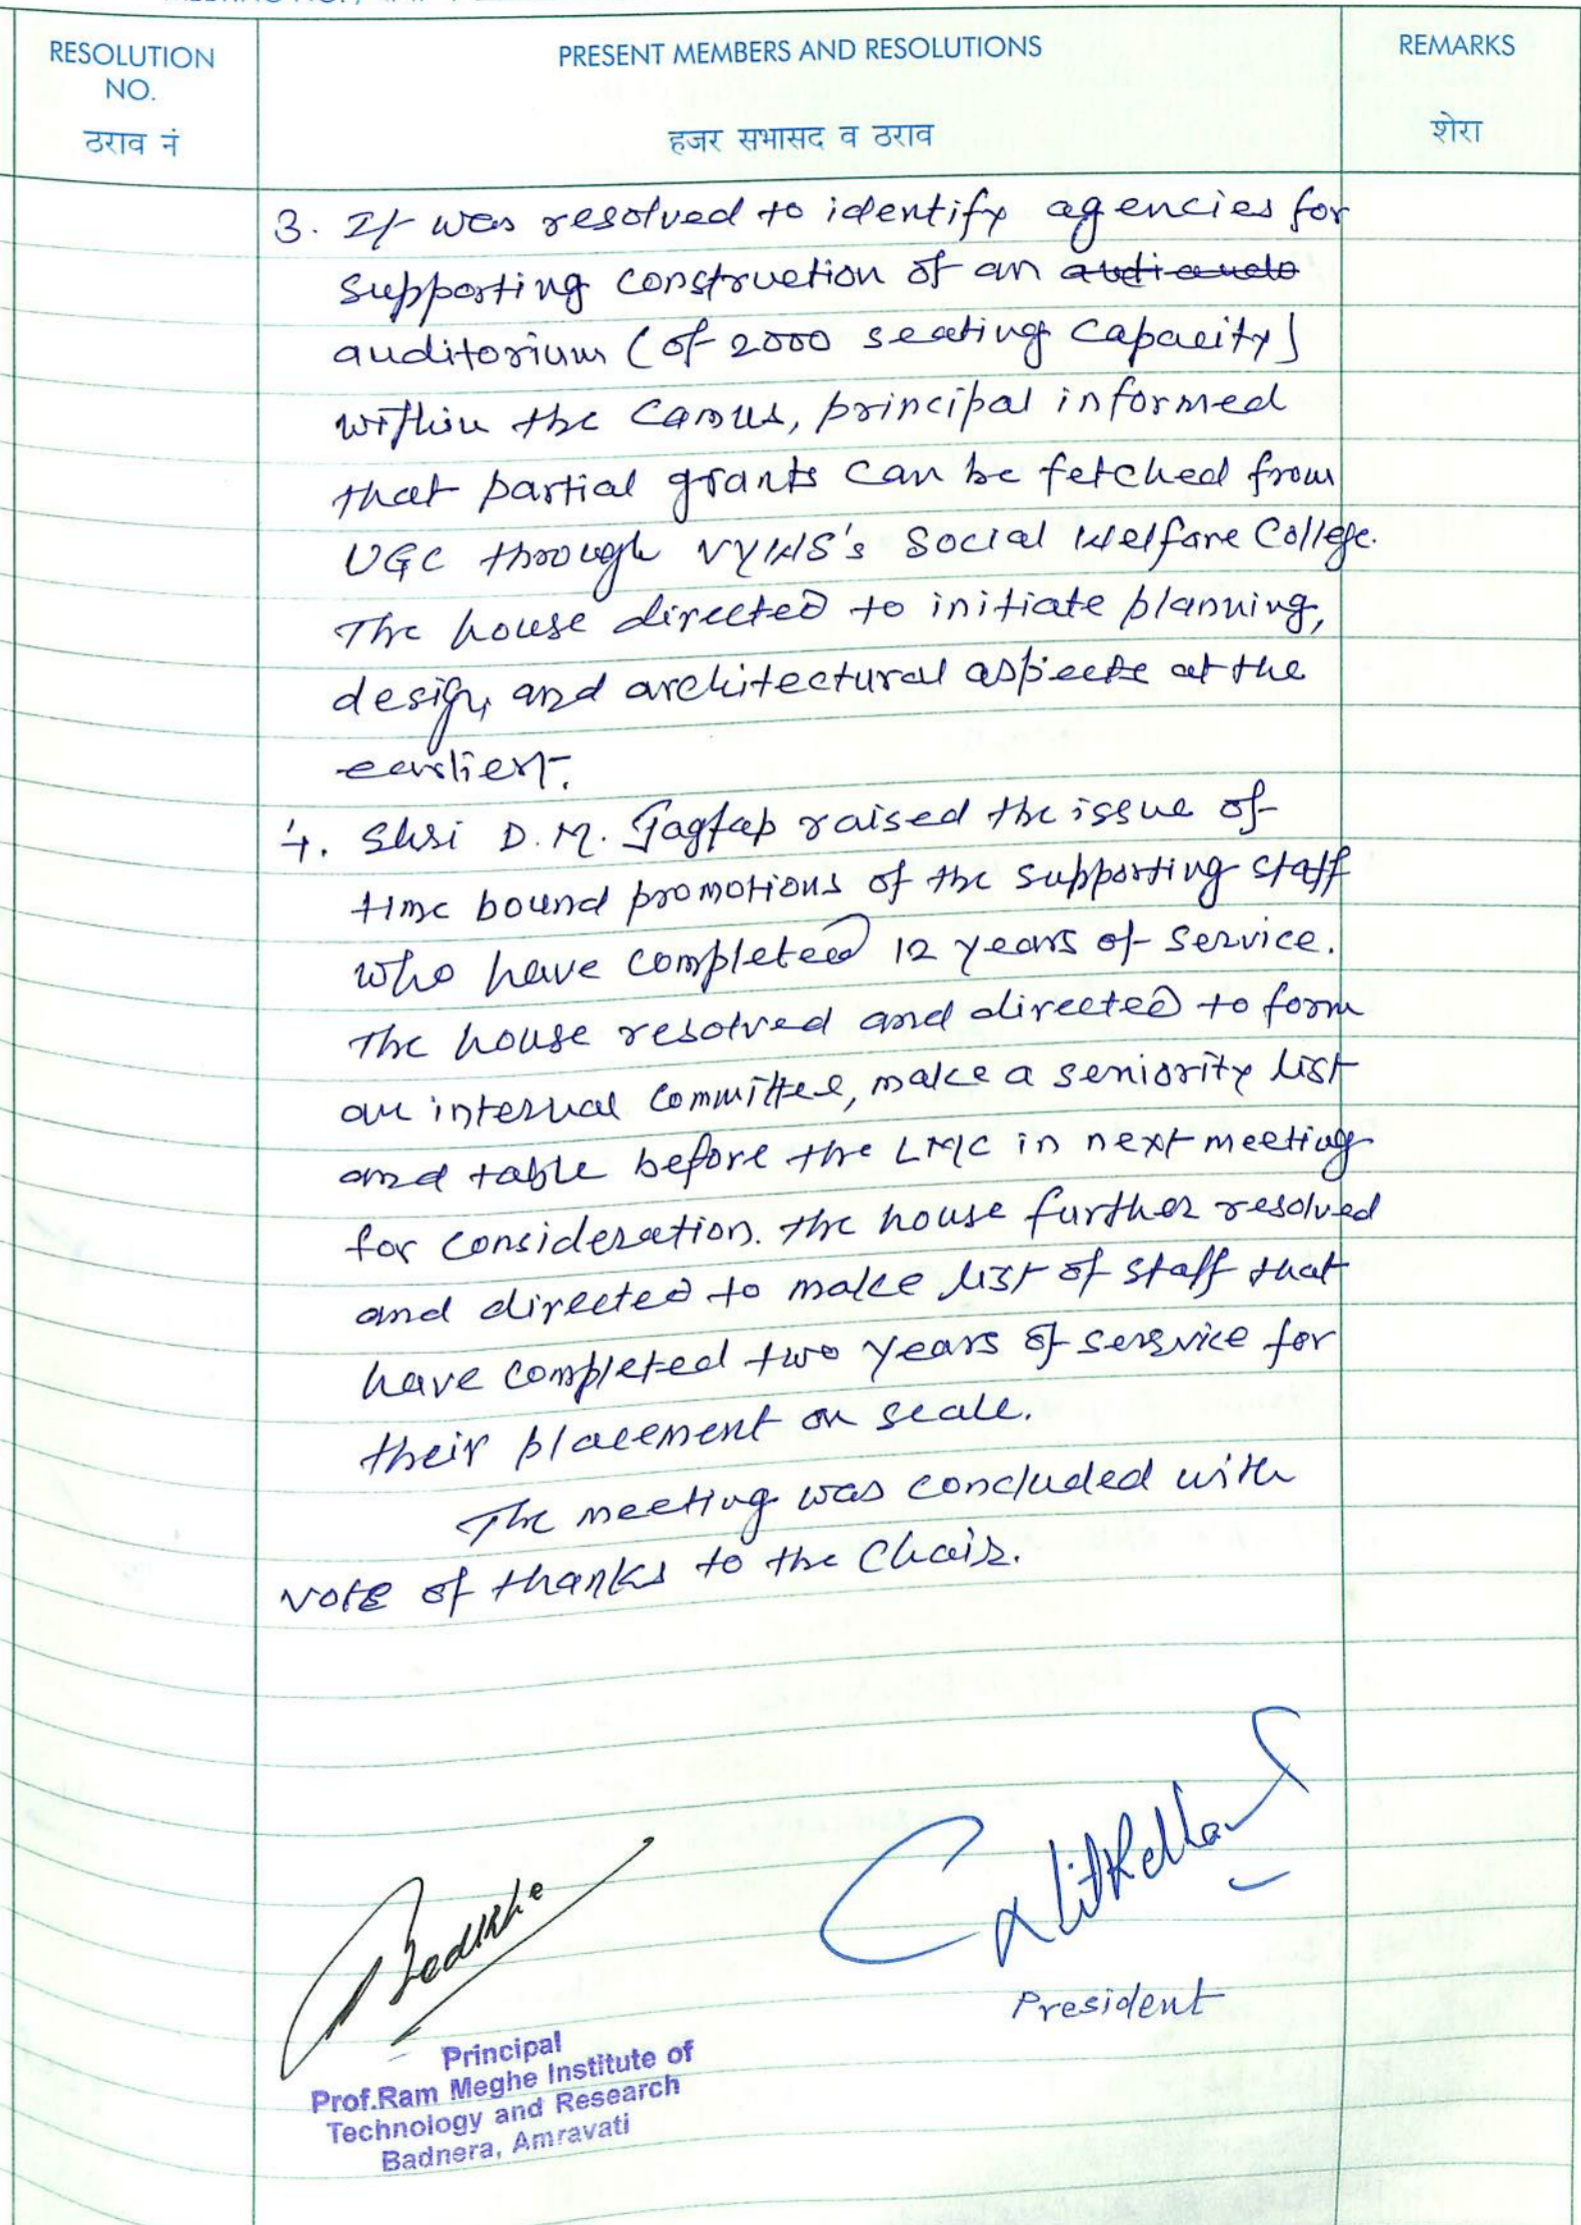 RESOLUTION
NO.
ठराव नं
PRESENT MEMBERS AND RESOLUTIONS
हजर सभासद व ठराव
REMARKS
शेरा
3. It was resolved to identify agencies for
supporting construction of an
auditorium (of 2000 seating capacity)
within the Camus, principal informed
that partial grants can be fetched from
UGC through VYWS's Social Welfare College.
The house directed to initiate planning,
design, and architectural aspects at the
earliest.
4. Shri D.M. Jagtap raised the issue of
time bound promotions of the supporting staff
who have completed 12 years of service.
The house resolved and directed to form
an internal committee, make a seniority list
and table before the LMC in next meeting
for consideration. The house further resolved
and directed to make list of staff that
have completed two years of service for
their placement on scale.
The meeting was concluded with
vote of thanks to the Chair.
President
Principal
Prof.Ram Meghe Institute of
Technology and Research
Badnera, Amravati